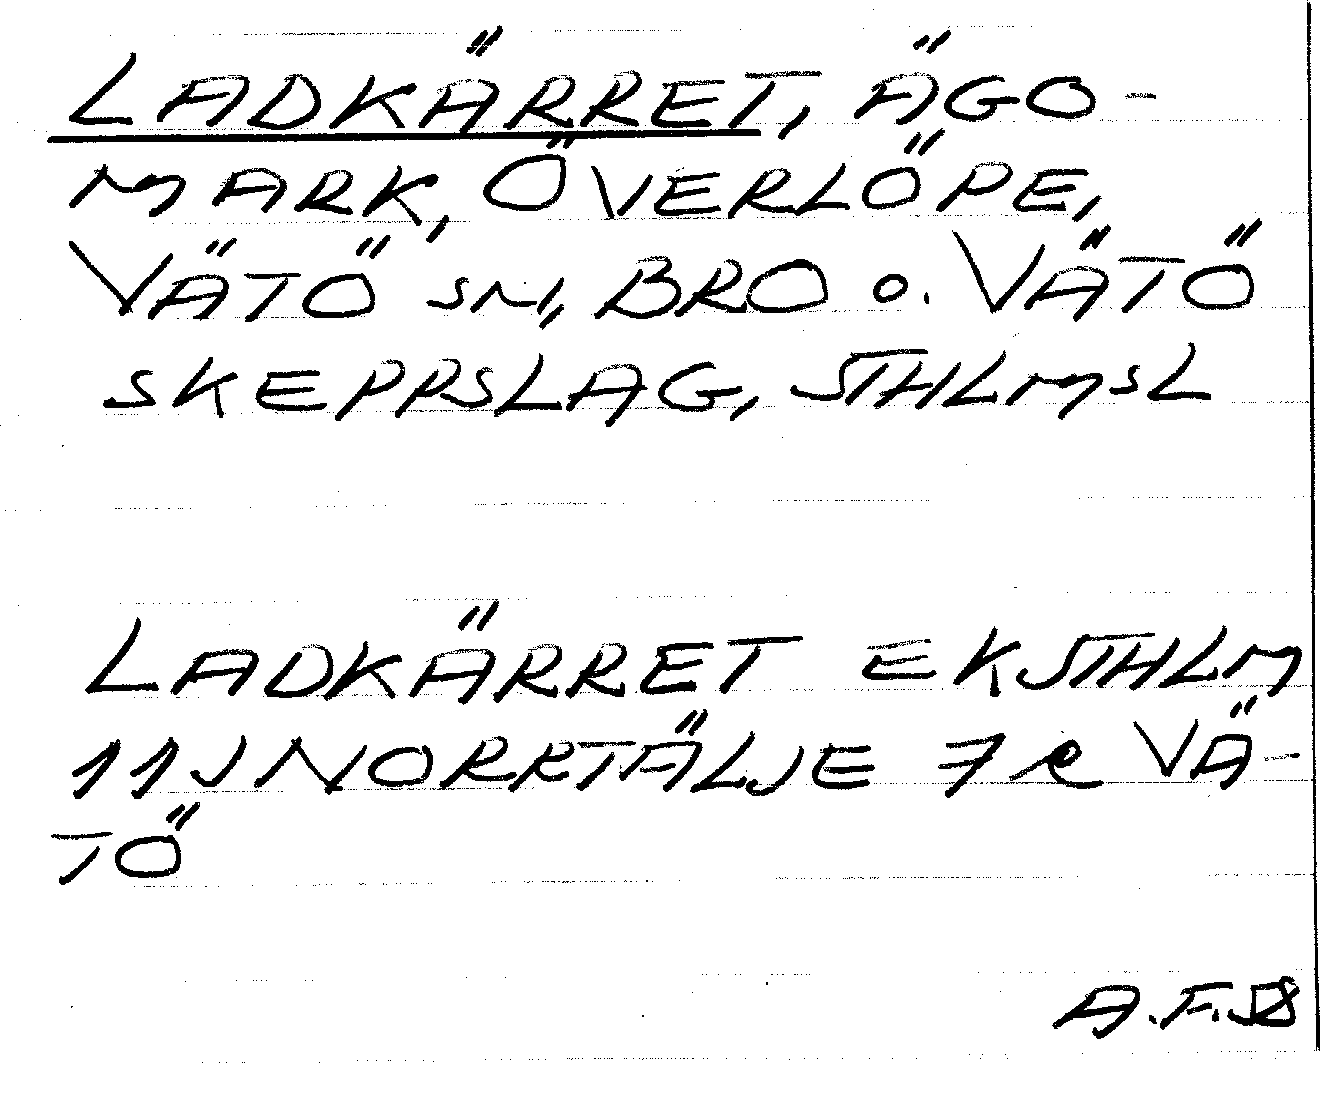 LADKÄRRET, ÄGO-
MARK, ÖVERLÖPE,
VÄTÖ SN, BRO O. VÄTÖ
SKEPPSLAG, STHLMSL
LADKÄRRET EKSTHLM
11J NORRTÄLJE 7 R VÄ-
TÖ
A.F.